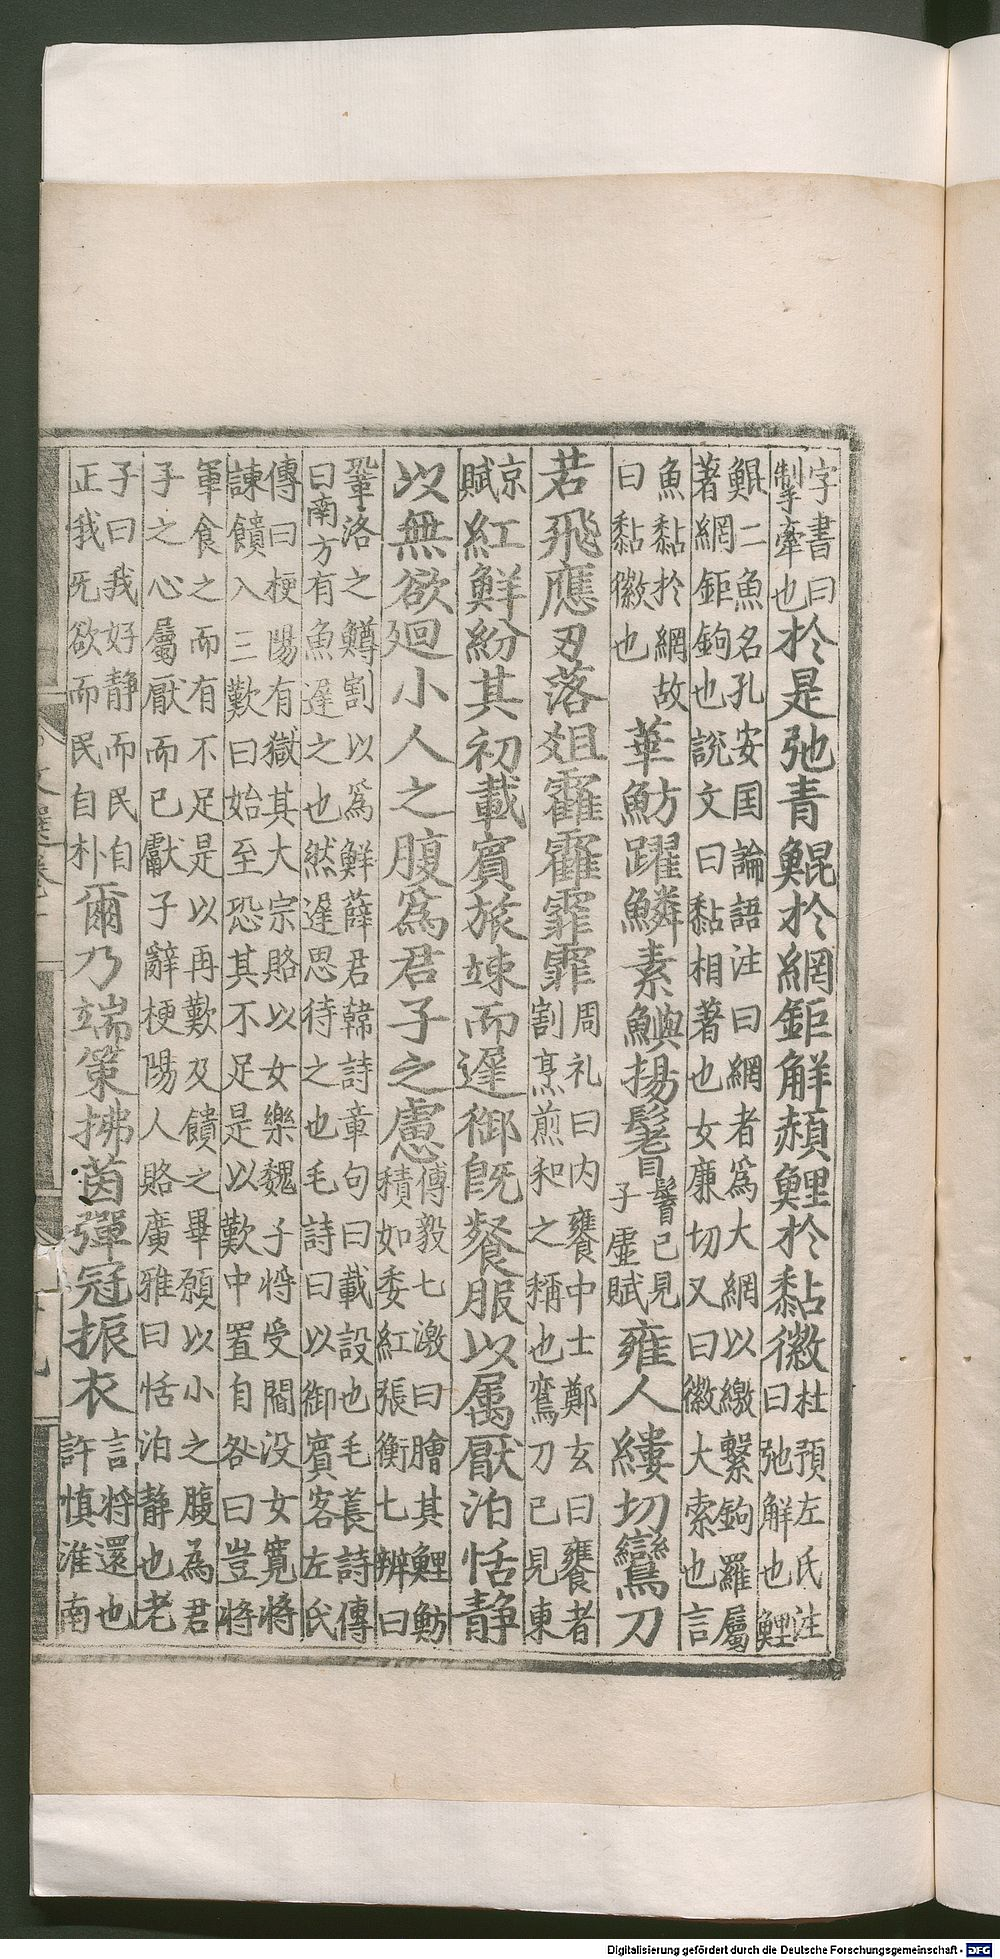 字書曰
掣牽也
於是弛青鯤於網鉅解赬鯉於黏徽
杜預左氏注
曰弛解也鯉
鯤二魚名孔安国論語注曰網者爲大網以繳繫鉤羅屬
著網鉅鉤也說文曰黏相著也女廉切又曰徽大索也言
魚黏於網故
曰黏徽也
華魴躍鱗素鱮揚鬐
鬐已見
子虛賦
雍人縷切鸞刀
若飛應刃落俎霍霍霏霏
周礼曰内饔中士鄭玄曰饔者
割烹煎和之稱也鸞刀已見東
京
賦
紅鮮紛其初載賓旅竦而遲御既餐服以属厭泊恬静
以無欲廻小人之腹爲君子之慮
傅毅七激曰膾其鯉魴
積如委紅張衡七辨曰
鞏洛之鱒割以爲鮮薛君韓詩章句曰載設也毛萇詩傳
曰南方有魚遲之也然遲思待之也毛詩曰以御賓客左氏
傳曰梗陽有獄其大宗賂以女樂魏子将受閻没女寬将
諫饋入三歎曰始至恐其不足是以歎中置自咎曰豈将
軍食之而有不足是以再歎及饋之畢願以小之腹為君
子之心屬厭而已獻子辭梗陽人賂廣雅曰恬泊静也老
子曰我好静而民自
正我旡欲而民自朴
爾乃端策拂茵彈冠振衣
言将還也
許慎淮南
文選卷十
Digitalisierung gefördert durch die Deutsche Forschungsgemeinschaft - DFG